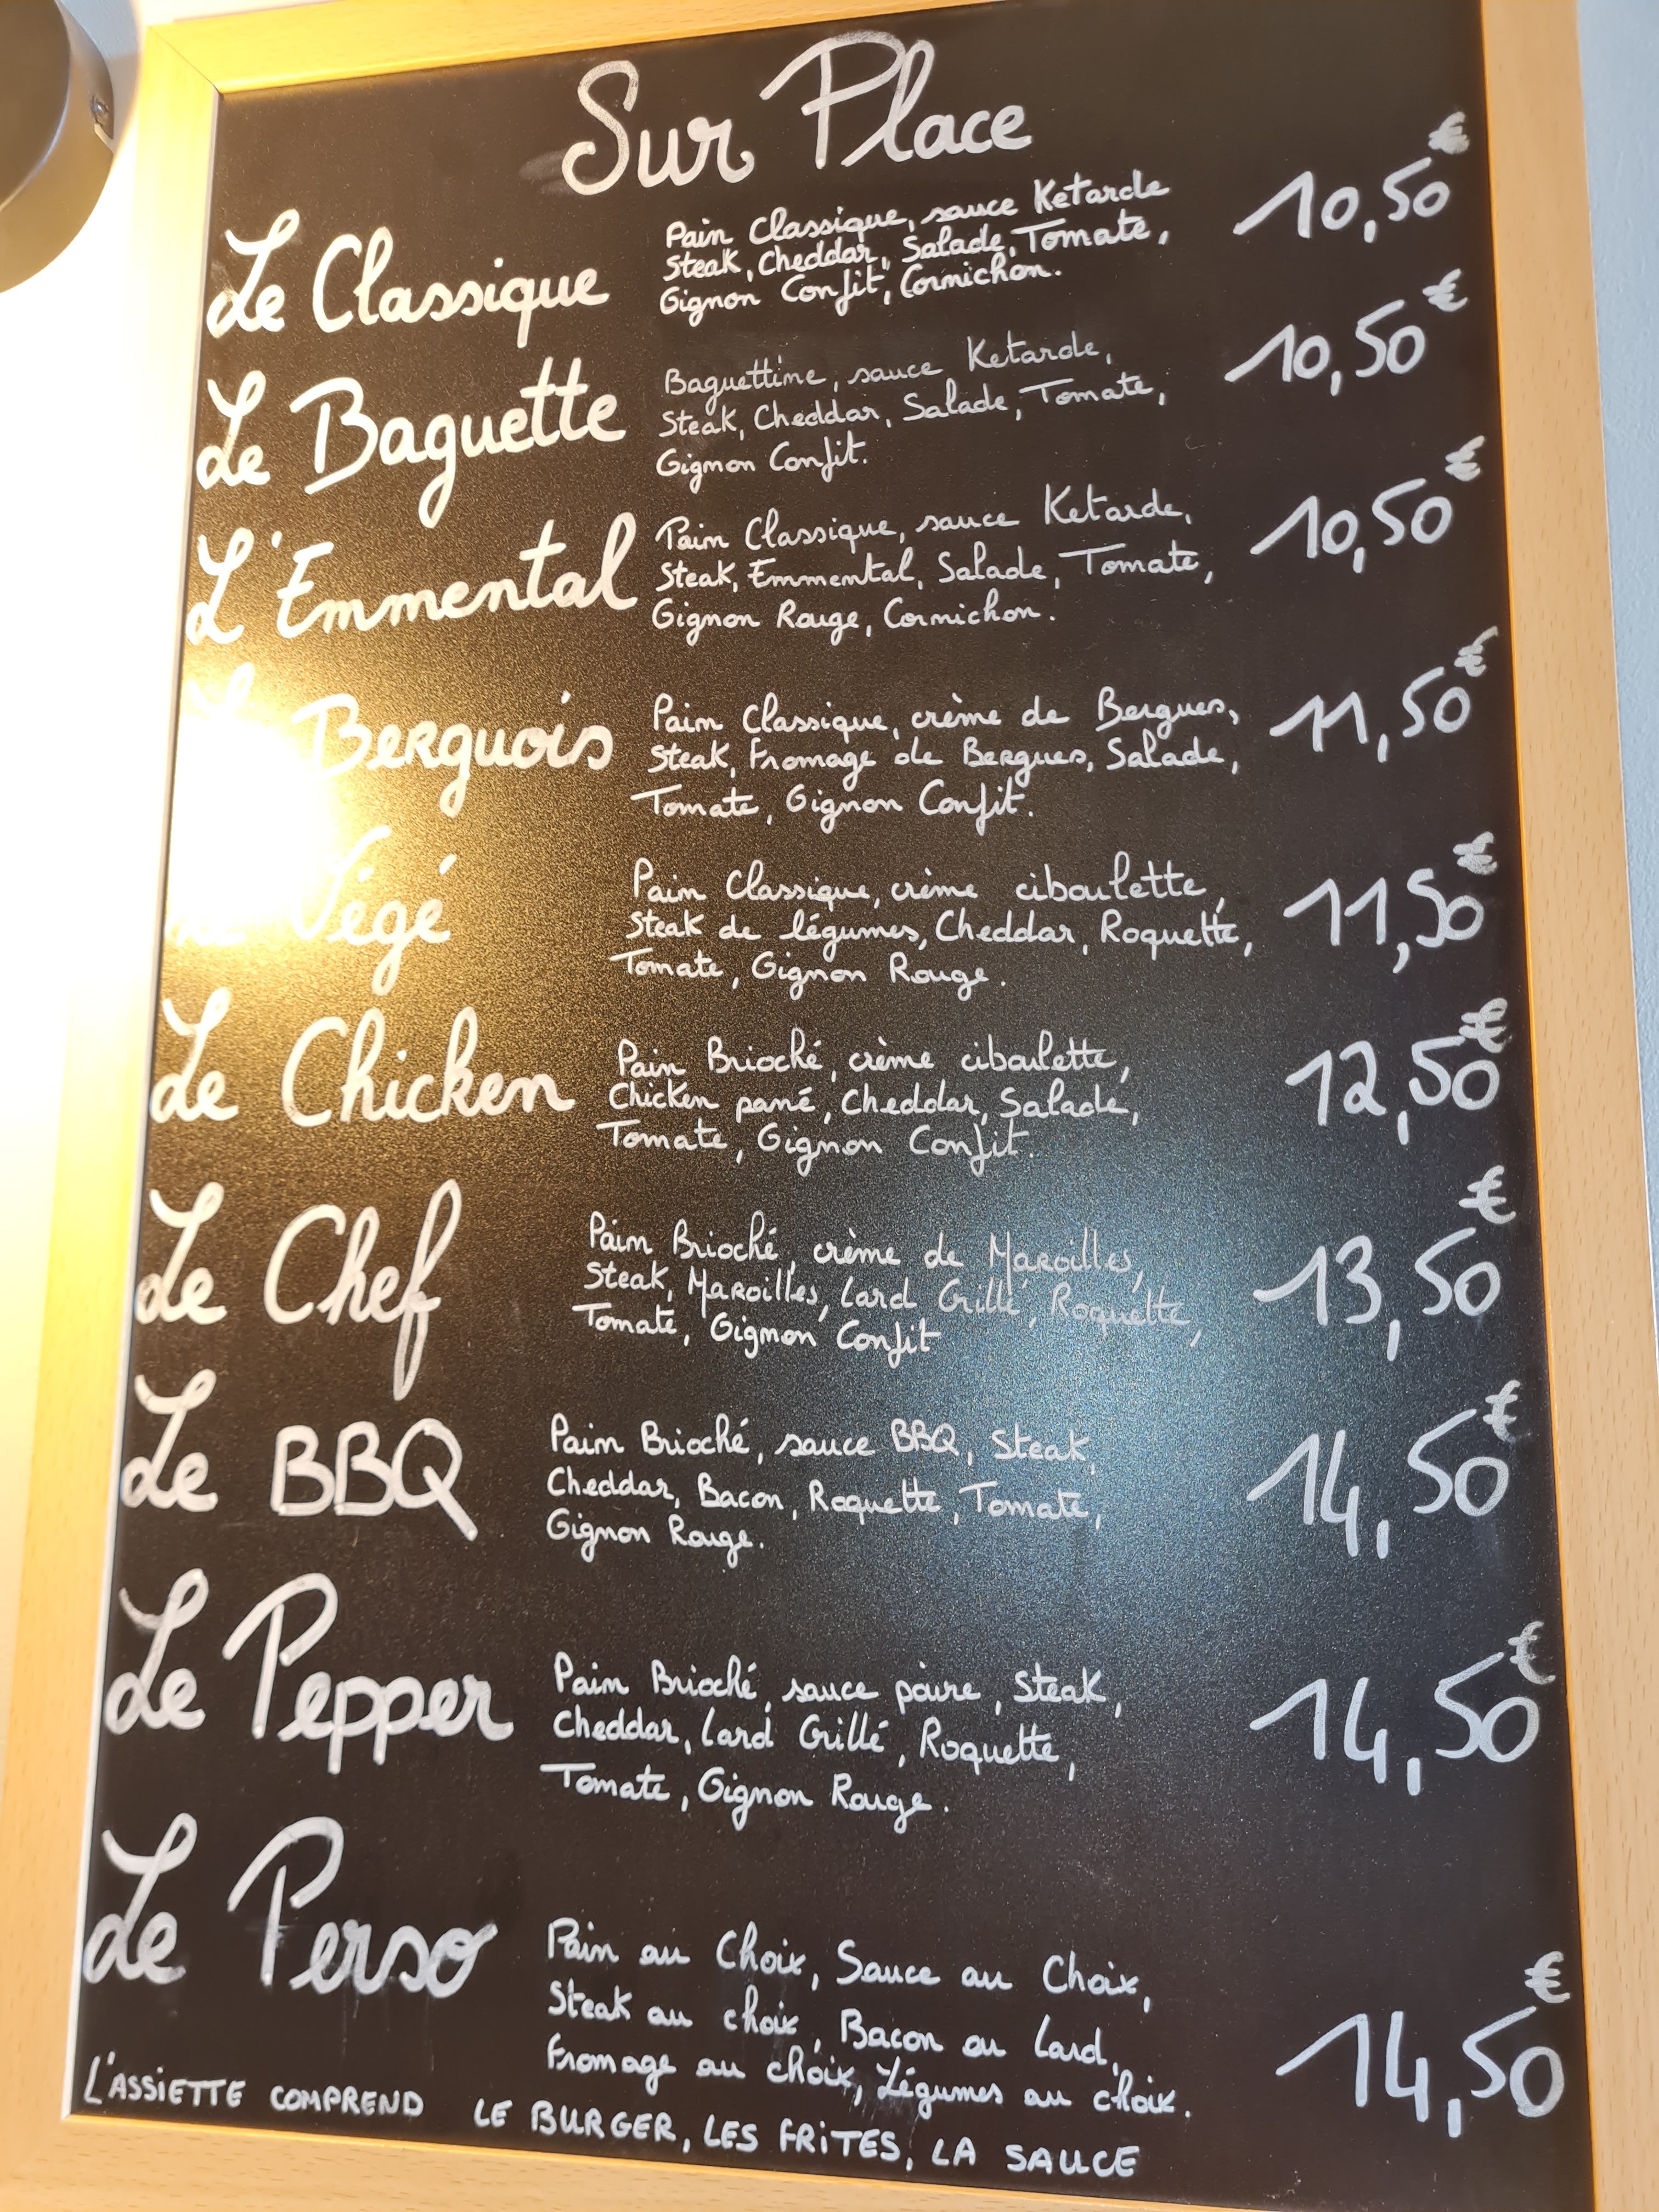 Sur Place
Le Classique
Pain Classique, sauce Ketarde
Steak, Cheddar, Salade, Tomate,
Oignon Confit, Cornichon.
10,50€
Le Baguette
Baguettine, sauce Ketarde,
Steak, Cheddar, Salade, Tomate,
Oignon Confit.
10,50€
L'Emmental
Pain Classique, sauce Ketarde,
Steak, Emmental, Salade, Tomate,
Oignon Rouge, Cornichon.
10,50€
Berguois
Pain Classique, crème de Bergues,
Steak, Fromage de Bergues, Salade,
Tomate, Oignon Confit.
11,50€
Végé
Pain Classique, crème ciboulette,
Steak de légumes, Cheddar, Roquette,
Tomate, Oignon Rouge.
11,50€
Le Chicken
Pain Brioché, crème ciboulette,
Chicken pané, Cheddar, Salade,
Tomate, Oignon Confit.
12,50€
Le Chef
Pain Brioché, crème de Maroilles,
Steak, Maroilles, Lard Grillé, Roquette,
Tomate, Oignon Confit
13,50€
Le BBQ
Pain Brioché, sauce BBQ, Steak,
Cheddar, Bacon, Roquette, Tomate,
Oignon Rouge.
14,50€
Le Pepper
Pain Brioché, sauce poivre, Steak,
Cheddar, Lard Grillé, Roquette,
Tomate, Oignon Rouge.
14,50€
Le Perso
Pain au Choix, Sauce au Choix,
Steak au choix, Bacon ou Lard,
Fromage au choix, Légumes au choix.
14,50€
L'ASSIETTE COMPREND LE BURGER, LES FRITES, LA SAUCE